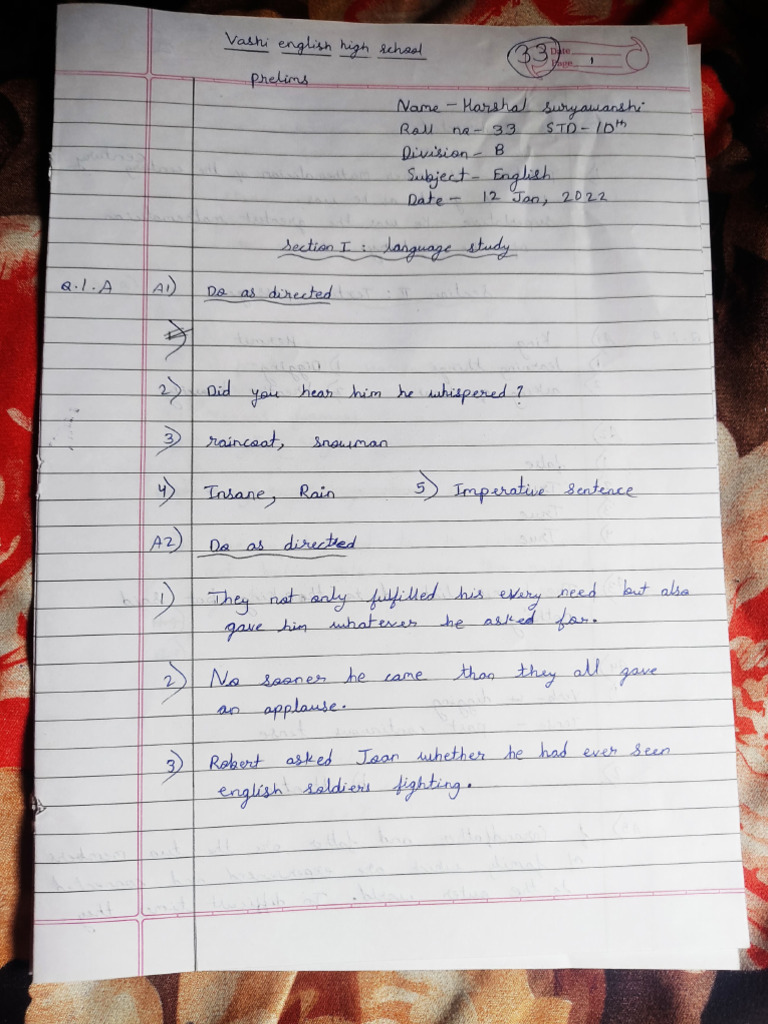 Vashi english high school
33
Date
Page 1
prelims
Name - Harshal Suryawanshi
Roll no - 33 STD - 10th
Division - B
Subject - English
Date - 12 Jan, 2022
Section I : language study
Q.1.A A1) Do as directed
2) Did you hear him he whispered?
3) raincoat, snowman
4) Insane, Rain 5) Imperative sentence
A2) Do as directed
1) They not only fulfilled his every need but also
gave him whatever he asked for.
2) No sooner he came than they all gave
an applause.
3) Robert asked Joan whether he had ever seen
english soldiers fighting.